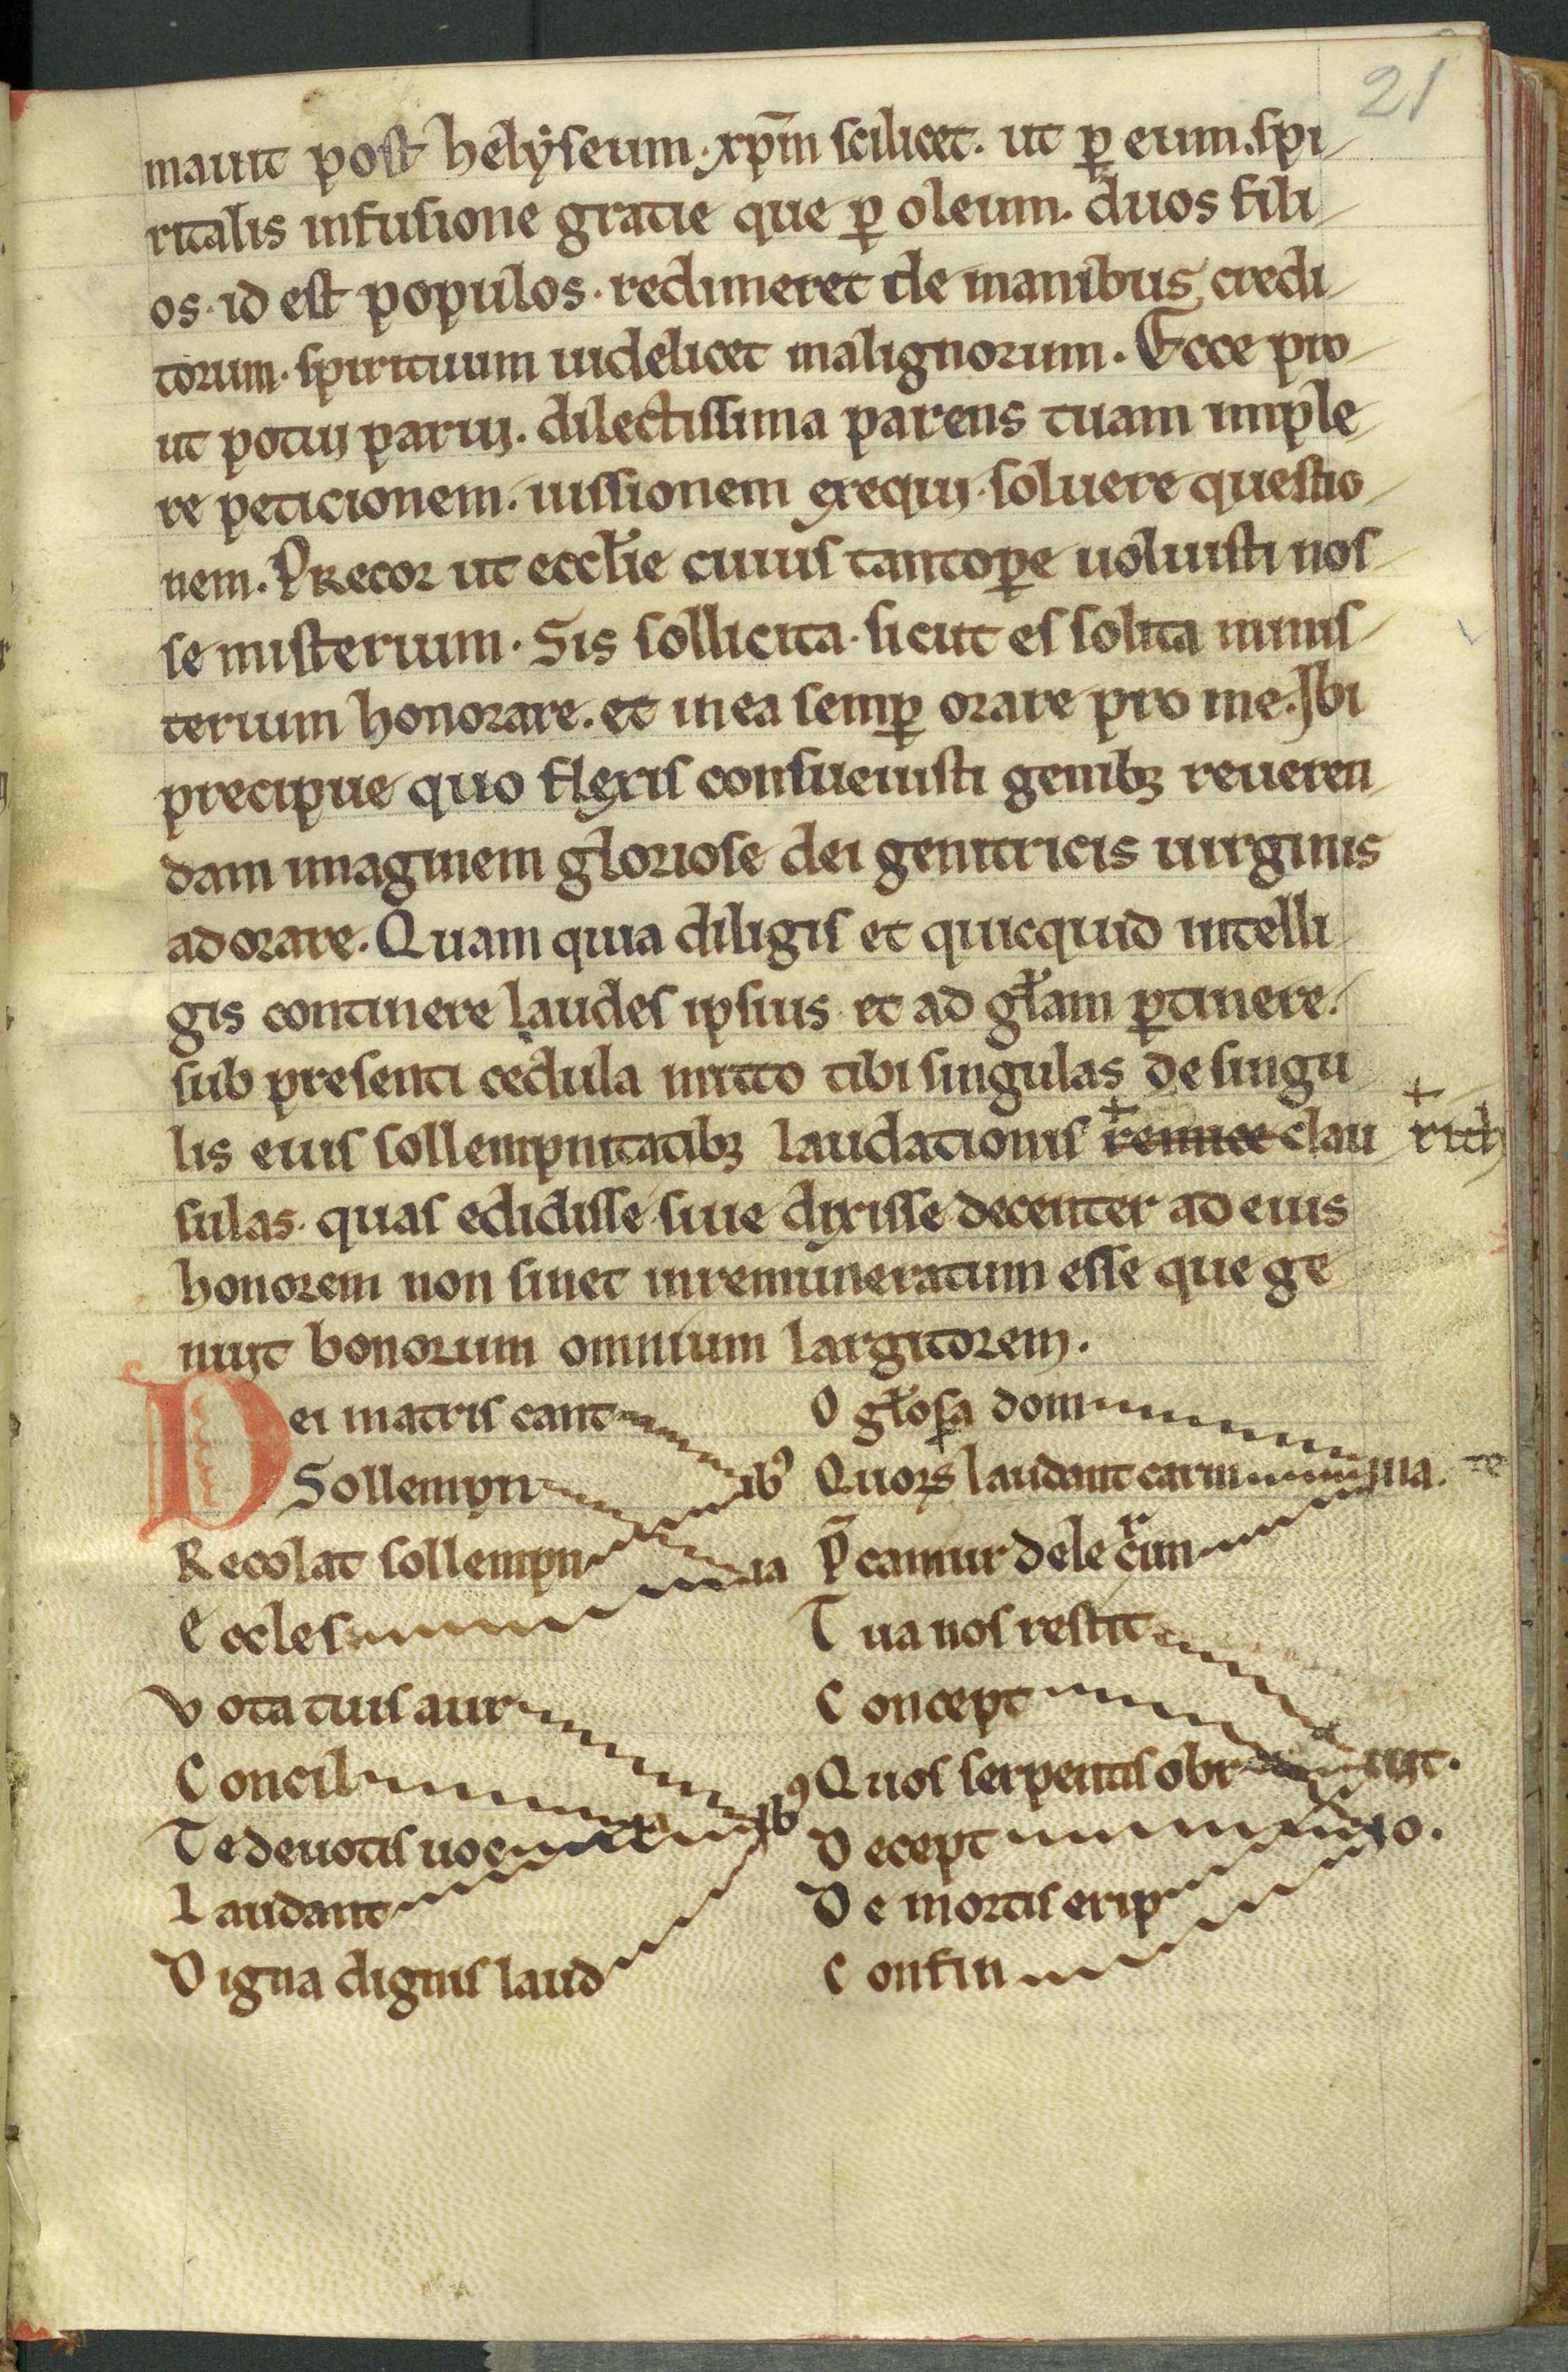 21
mauit post helyseum. xp̄m scilicet. ut ꝑ eum. spi
ritalis infusione gratie que ꝑ oleum. duos fili
os. id est populos. redimeret de manibus credi
torum. spirituum uidelicet malignorum. Ecce pro
ut potui parui. dilectissima parens tuam imple
re peticionem. iussionem exequi. soluere questio
nem. Precor ut eccl̄ie cuius tantoꝑe uoluisti nos
se misterium. Sis sollicita. sicut es solita minis
terium honorare. et in ea semꝑ orare pro me. Ibi
precipue quo flexis consueuisti genibꝫ reueren
dam imaginem gloriose dei genitricis uirginis
adorare. Quam quia diligis et quicquid intelli
gis continere laudes ipsius et ad gl̄am ꝑtinere.
sub presenti cedula mitto tibi singulas de singu
lis eius sollempnitatibꝫ laudationis clau
sulas. quas edidisse siue dixisse decenter ad eius
honorem non sinet inremuneratum esse que ge
nuit bonorum omnium largitorem.
Dei matris cant
Sollempn ibꝰ
Recolat sollempn ia
Eccles
Vota tuis aur
Concil
Te deuotis uoc ibꝰ
Laudant
Digna dignis laud
O gl̄osa dom
Quoꝝ laudant carm ina. te
P̄camur dele crim
Tua nos restit
Concept
Quos serpentis obr uit.
Decept io.
De mortis erip
Confin